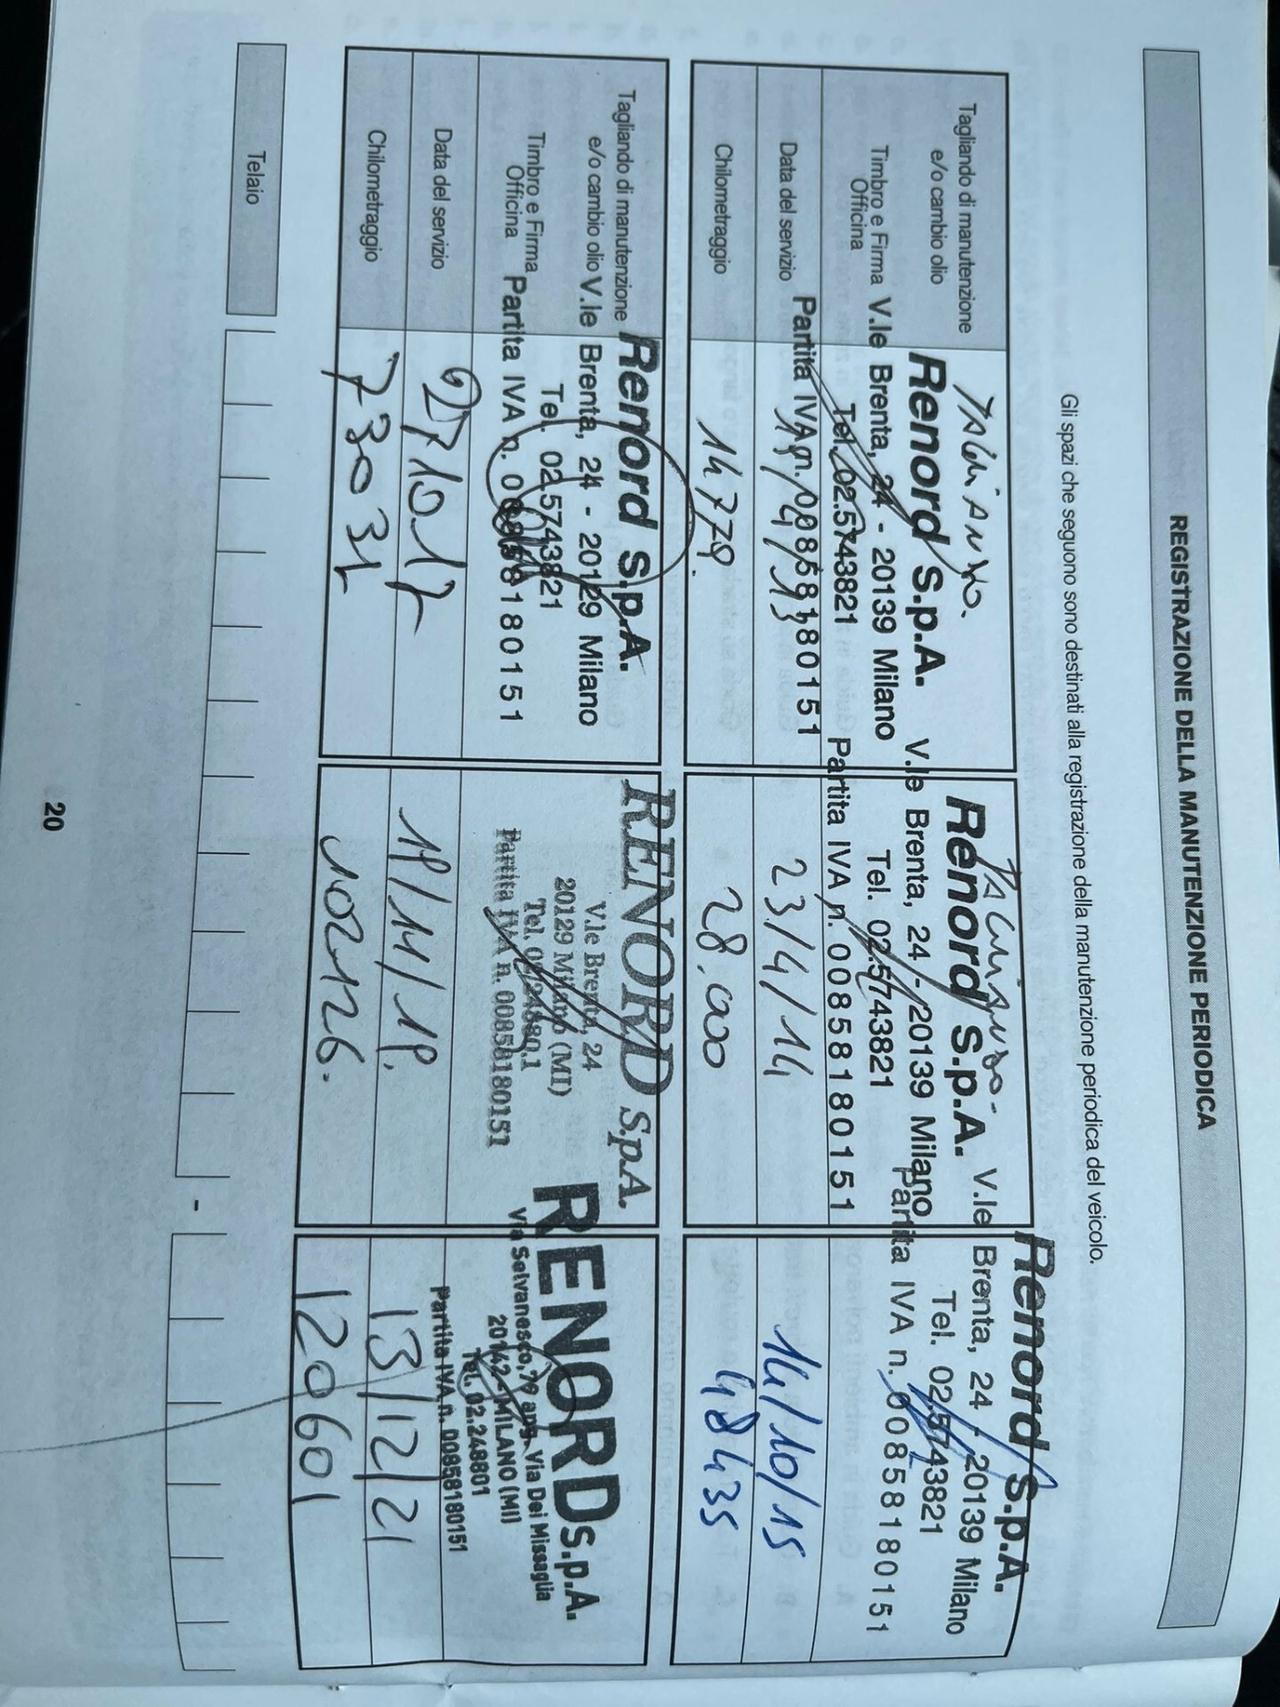 REGISTRAZIONE DELLA MANUTENZIONE PERIODICA
Gli spazi che seguono sono destinati alla registrazione della manutenzione periodica del veicolo.
Tagliando di manutenzione
e/o cambio olio
Timbro e Firma
Officina
Data del servizio
Chilometraggio
TAGLIANDO.
Renord S.p.A.
V.le Brenta, 24 - 20139 Milano
Tel. 02.5743821
Partita IVA n. 00858180151
14779.
TAGLIANDO-
Renord S.p.A.
V.le Brenta, 24 - 20139 Milano
Tel. 02.5743821
Partita IVA n. 00858180151
23/4/14
28.000
Renord S.p.A.
V.le Brenta, 24 - 20139 Milano
Tel. 02.5743821
Partita IVA n. 00858180151
14/10/15
48435
Tagliando di manutenzione
e/o cambio olio
Timbro e Firma
Officina
Data del servizio
Chilometraggio
Renord S.p.A.
V.le Brenta, 24 - 20129 Milano
Tel. 02.5743821
Partita IVA n. 00858180151
RENORD S.p.A.
V.le Brenta, 24
20129 Milano (MI)
Tel. 02.24880.1
Partita IVA n. 00858180151
19/11/19.
102126.
RENORD S.p.A.
Via Selvanesco, 79 ang. Via Dei Missaglia
20142 - MILANO (MI)
Tel. 02.248801
Partita IVA n. 00858180151
13/12/21
120601
Telaio
-
20